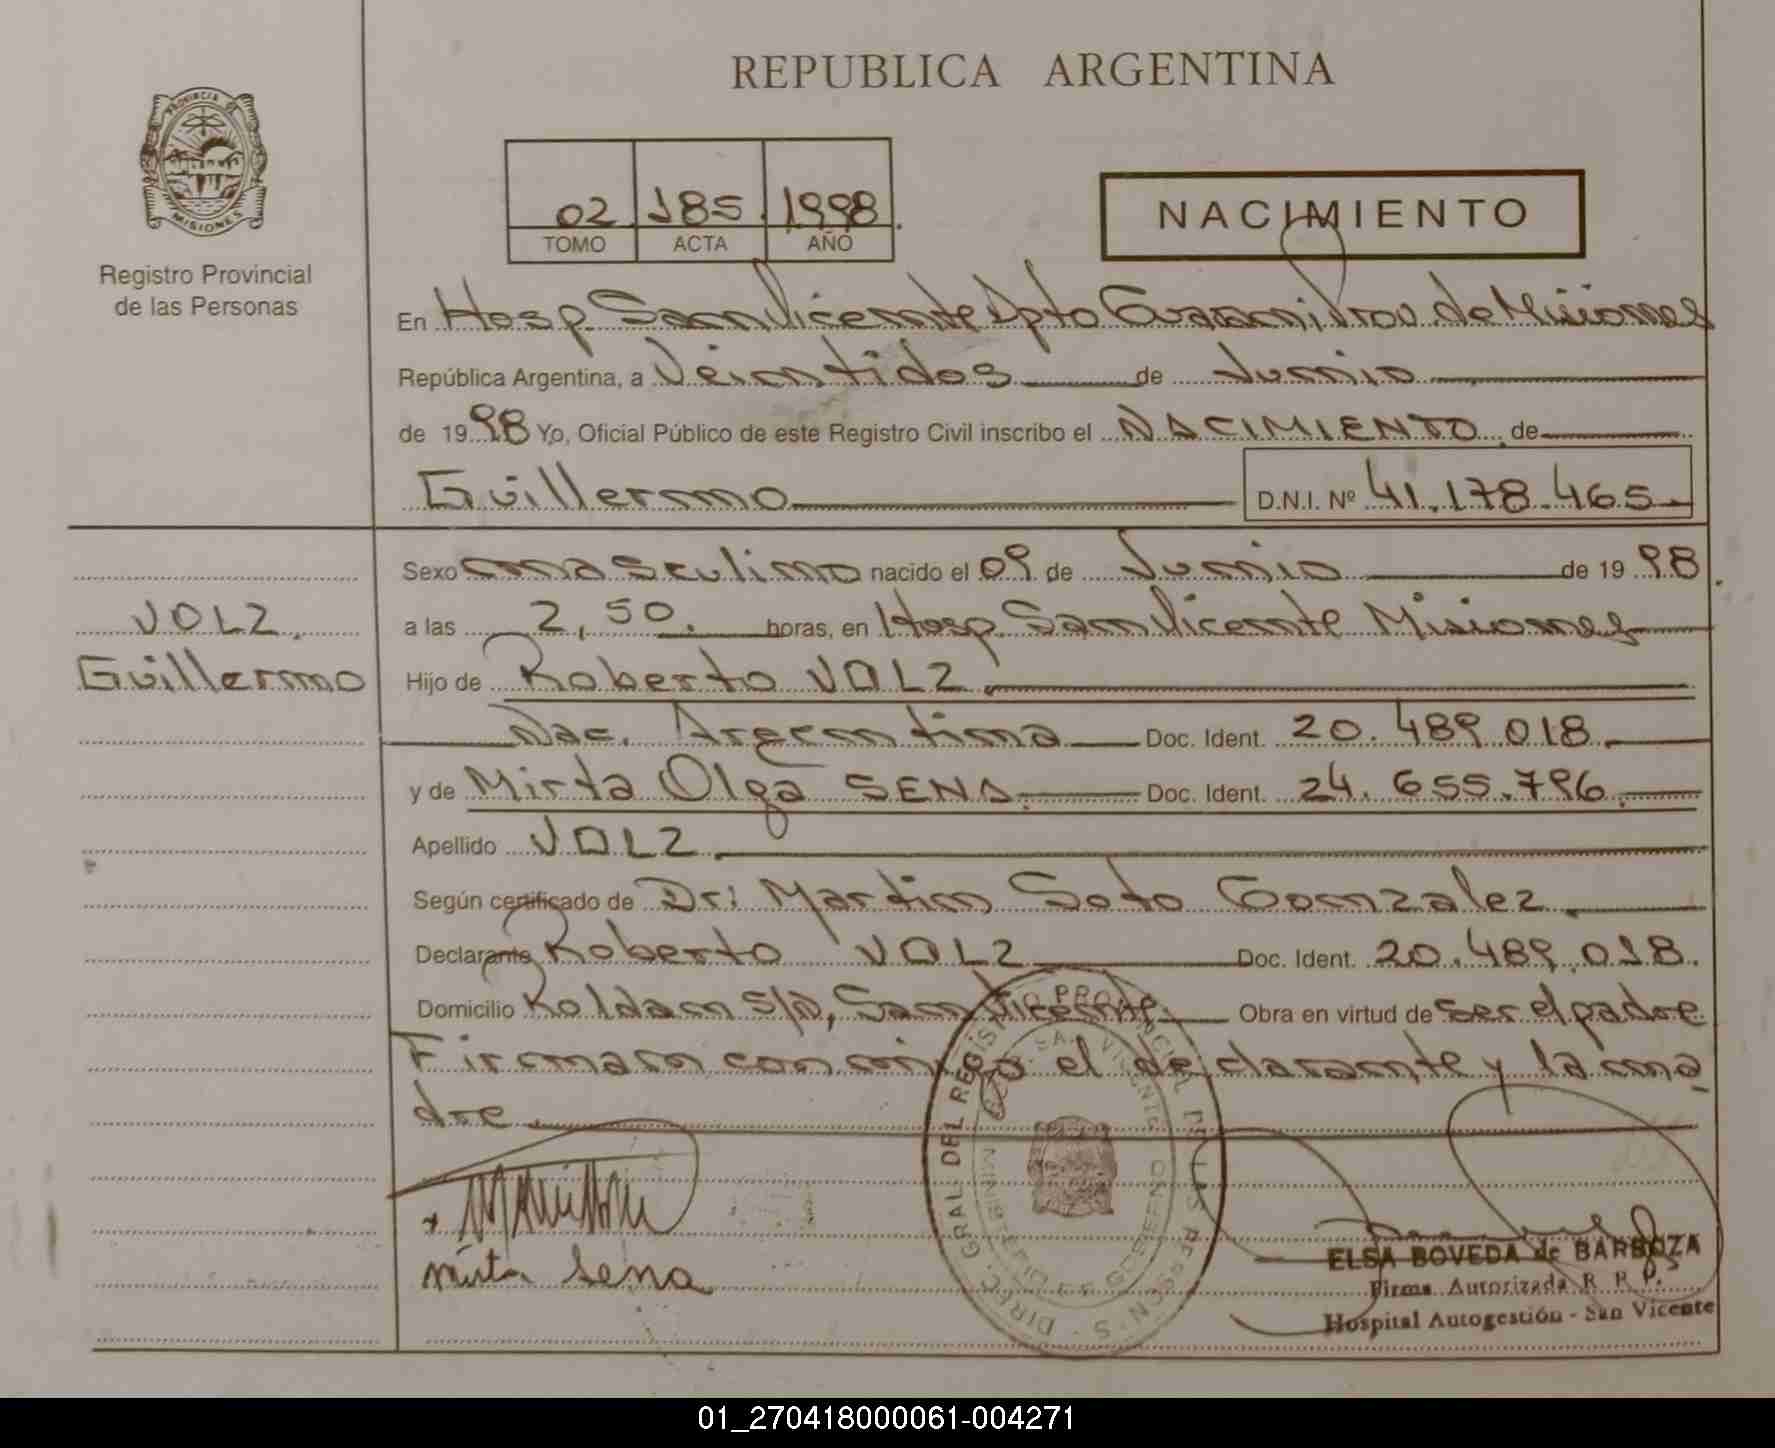 REPUBLICA ARGENTINA
PROVINCIA DE
MISIONES
Registro Provincial
de las Personas
02 185. 1998.
TOMO ACTA AÑO
NACIMIENTO
En Hosp. San Vicente Dpto Guarani Prov. de Misiones
República Argentina, a Veintidos de Junio
de 1998 Yo, Oficial Público de este Registro Civil inscribo el NACIMIENTO, de
Guillermo D.N.I. Nº 41.178.465.-
Sexo masculino nacido el 09 de Junio de 1998.
VOLZ.
Guillermo
a las 2,50. horas, en Hosp. San Vicente Misiones
Hijo de Roberto VOLZ.
Nac. Argentina Doc. Ident. 20.489.018.
y de Mirta Olga SENA. Doc. Ident. 24.655.796.
Apellido VOLZ.
Según certificado de Dr: Martin Soto Gonzalez.
Declarante Roberto VOLZ Doc. Ident. 20.489.018.
Domicilio Roldan S/n, San Vicente Obra en virtud de ser el padre
Firman conmigo el declarante y la ma
dre
mirta Sena
DIREC. GRAL DEL REGISTRO PROVINCIAL DE LAS PERSONAS
SAN VICENTE
MINISTERIO DE GOBIERNO
ELSA BOVEDA de BARBOZA
Firma Autorizada R. P. P.
Hospital Autogestión - San Vicente
01_270418000061-004271